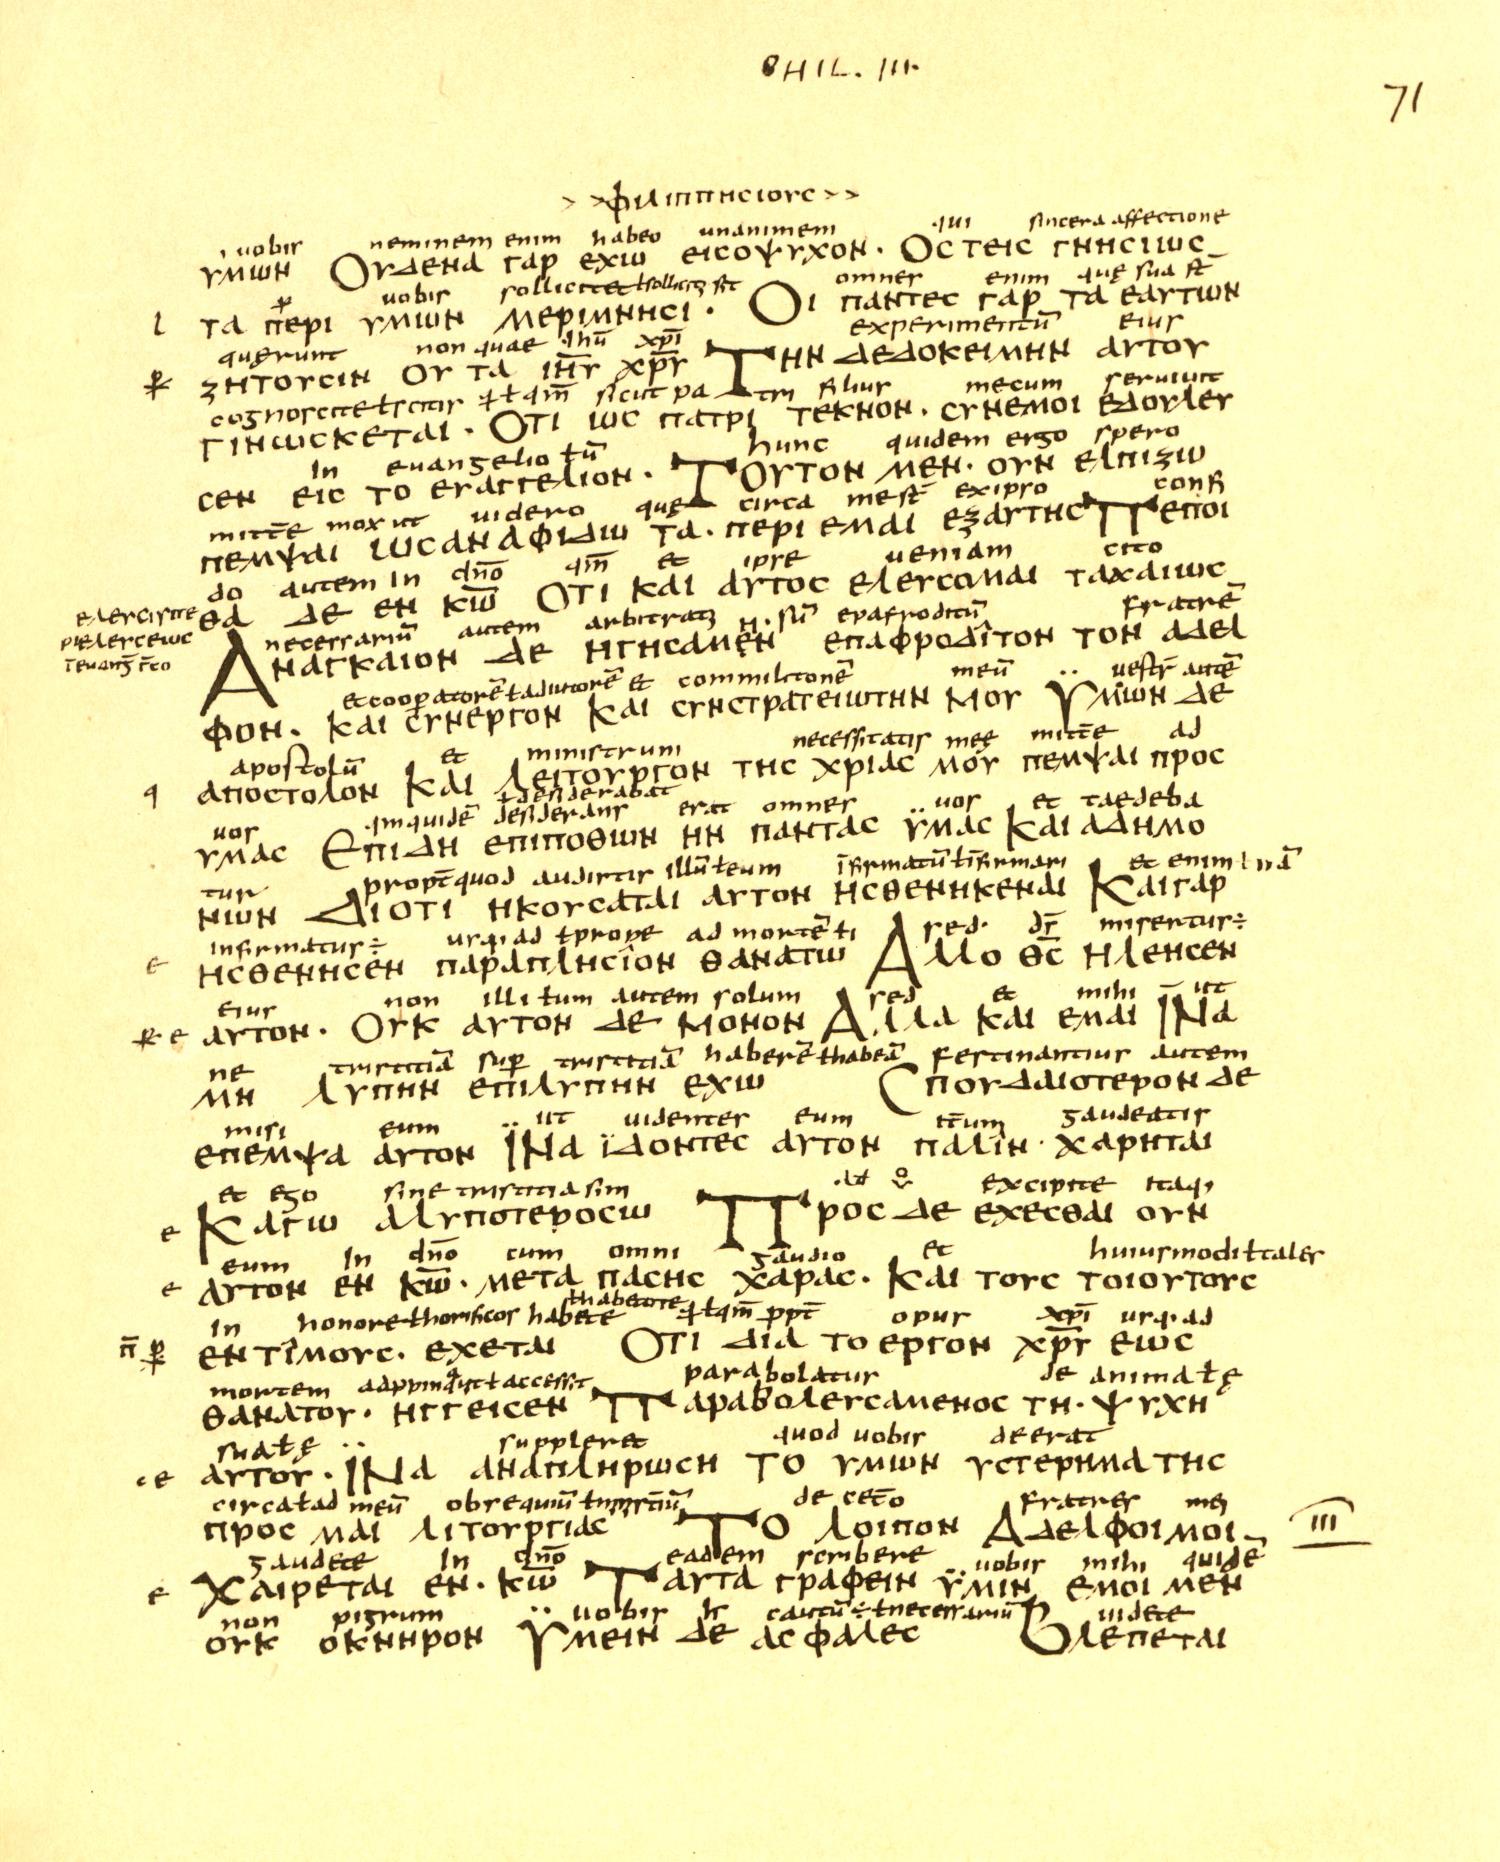 PHIL. III.
71
> > φιλιππησιους > >
uobis neminem enim habeo unanimem qui sincera affectione
υμων Ουδενα γαρ εχω εισοψυχον · Οστεις γνησιως
uobis omnes enim quę sua st̄
l τα περι υμων μεριμνησι · Οι παντες γαρ τα εαυτων
querunt non quae ihū xpī experimentū eius
ζητουσιν Ου τα ιη̅υ χρ̅υ Την δεδοκειμην αυτου
sicut patri filius mecum seruiuit
γινωσκεται · Οτι ως πατρι τεκνον · συνεμοι εδουλευ
in euangelio hunc quidem ergo spero
σεν εις το ευαγγελιον · Τουτον μεν · ουν ελπιζω
mittē mox ut uidero quę circa me st̄ exipro confi
πεμψαι ωσαναφιδω τα · περι εμαι εξαυτης Πεποι
do autem in dn̄o qm̄ et ipse ueniam cito
θα δε εν κω̅ Οτι και αυτος ελευσομαι ταχαιως
necessariū autem sū epafroditū fratrē
Αναγκαιον δε ηγησαμεν επαφροδιτον τον αδελ
et cooperatorē ł adiutorē et commilitonē meū uestr̄ autē
φον · και συνεργον Και συνστρατειωτην μου Ϋμων δε
apostolū et ministrum necessitatis meę mittē ad
αποστολον Και λειτουργον της χριας μου πεμψαι προς
ł desiderabat
uos qm quidē desiderans erat omnes uos et taedeba
υμας Επιδη επιποθων ην παντας ϋμας Και αδημο
tur propt̄ quod audistis illū ł eum īfirmatū ł īfirmari et enim
νων Διοτι ηκουσαται αυτον ησθενηκεναι Καιγαρ
infirmatus÷ usq; ad ł prope ad mortē sed ds̄ misertus÷
ε ησθενησεν παραπλησιον θανατω Αλλο θς̅ ηλεησεν
eius non illi ł um autem solum sed et mihi ut
αυτον · Ουκ αυτον δε μονον Αλλα και εμαι Ινα
ne tristitiā sup̄ tristitiā haberē ł habeā festinantius autem
μη λυπην επιλυπην εχω Σπουδαιοτερον δε
misi eum ut uidentes eum gaudeatis
επεμψα αυτον Ϊνα ϊδοντες αυτον παλιν · χαρηται
et ego sine tristitia sim excipite itaq;
ε Καγω αλυποτεροσω Προς δε εχεσθαι ουν
eum in dn̄o cum omni gaudio et huiusmodi ł tales
ε αυτον εν κω̅ · μετα πασης χαρας · Και τους τοιουτους
in honore ł honorificos habete ł qm̄ ppt̄ opus xpī usq; ad
εντιμους · εχεται Οτι δια το εργον χρ̅υ εως
mortem parabolatus de anima ł ę
θανατου · ηγγεισεν Παραβολευσαμενος τη · ψυχη
sua ł ę suppleret quod uobis deerat
αυτου · Ϊνα αναπληρωση το υμων υστερημα της
circa ł ad meū obsequiū de cet̄o fratres mei
προς μαι λιτουργιας Το λοιπον Αδελφοι μοι
III
gaudete in dn̄o eadem scribere uobis mihi quidē
ε Χαιρεται εν · κω̅ Ταυτα γραφειν ϋμιν εμοι μεν
non pigrum uobis cautū ÷ ł necessariū uidete
ουκ οκνηρον Ϋμειν δε ασφαλες Βλεπεται